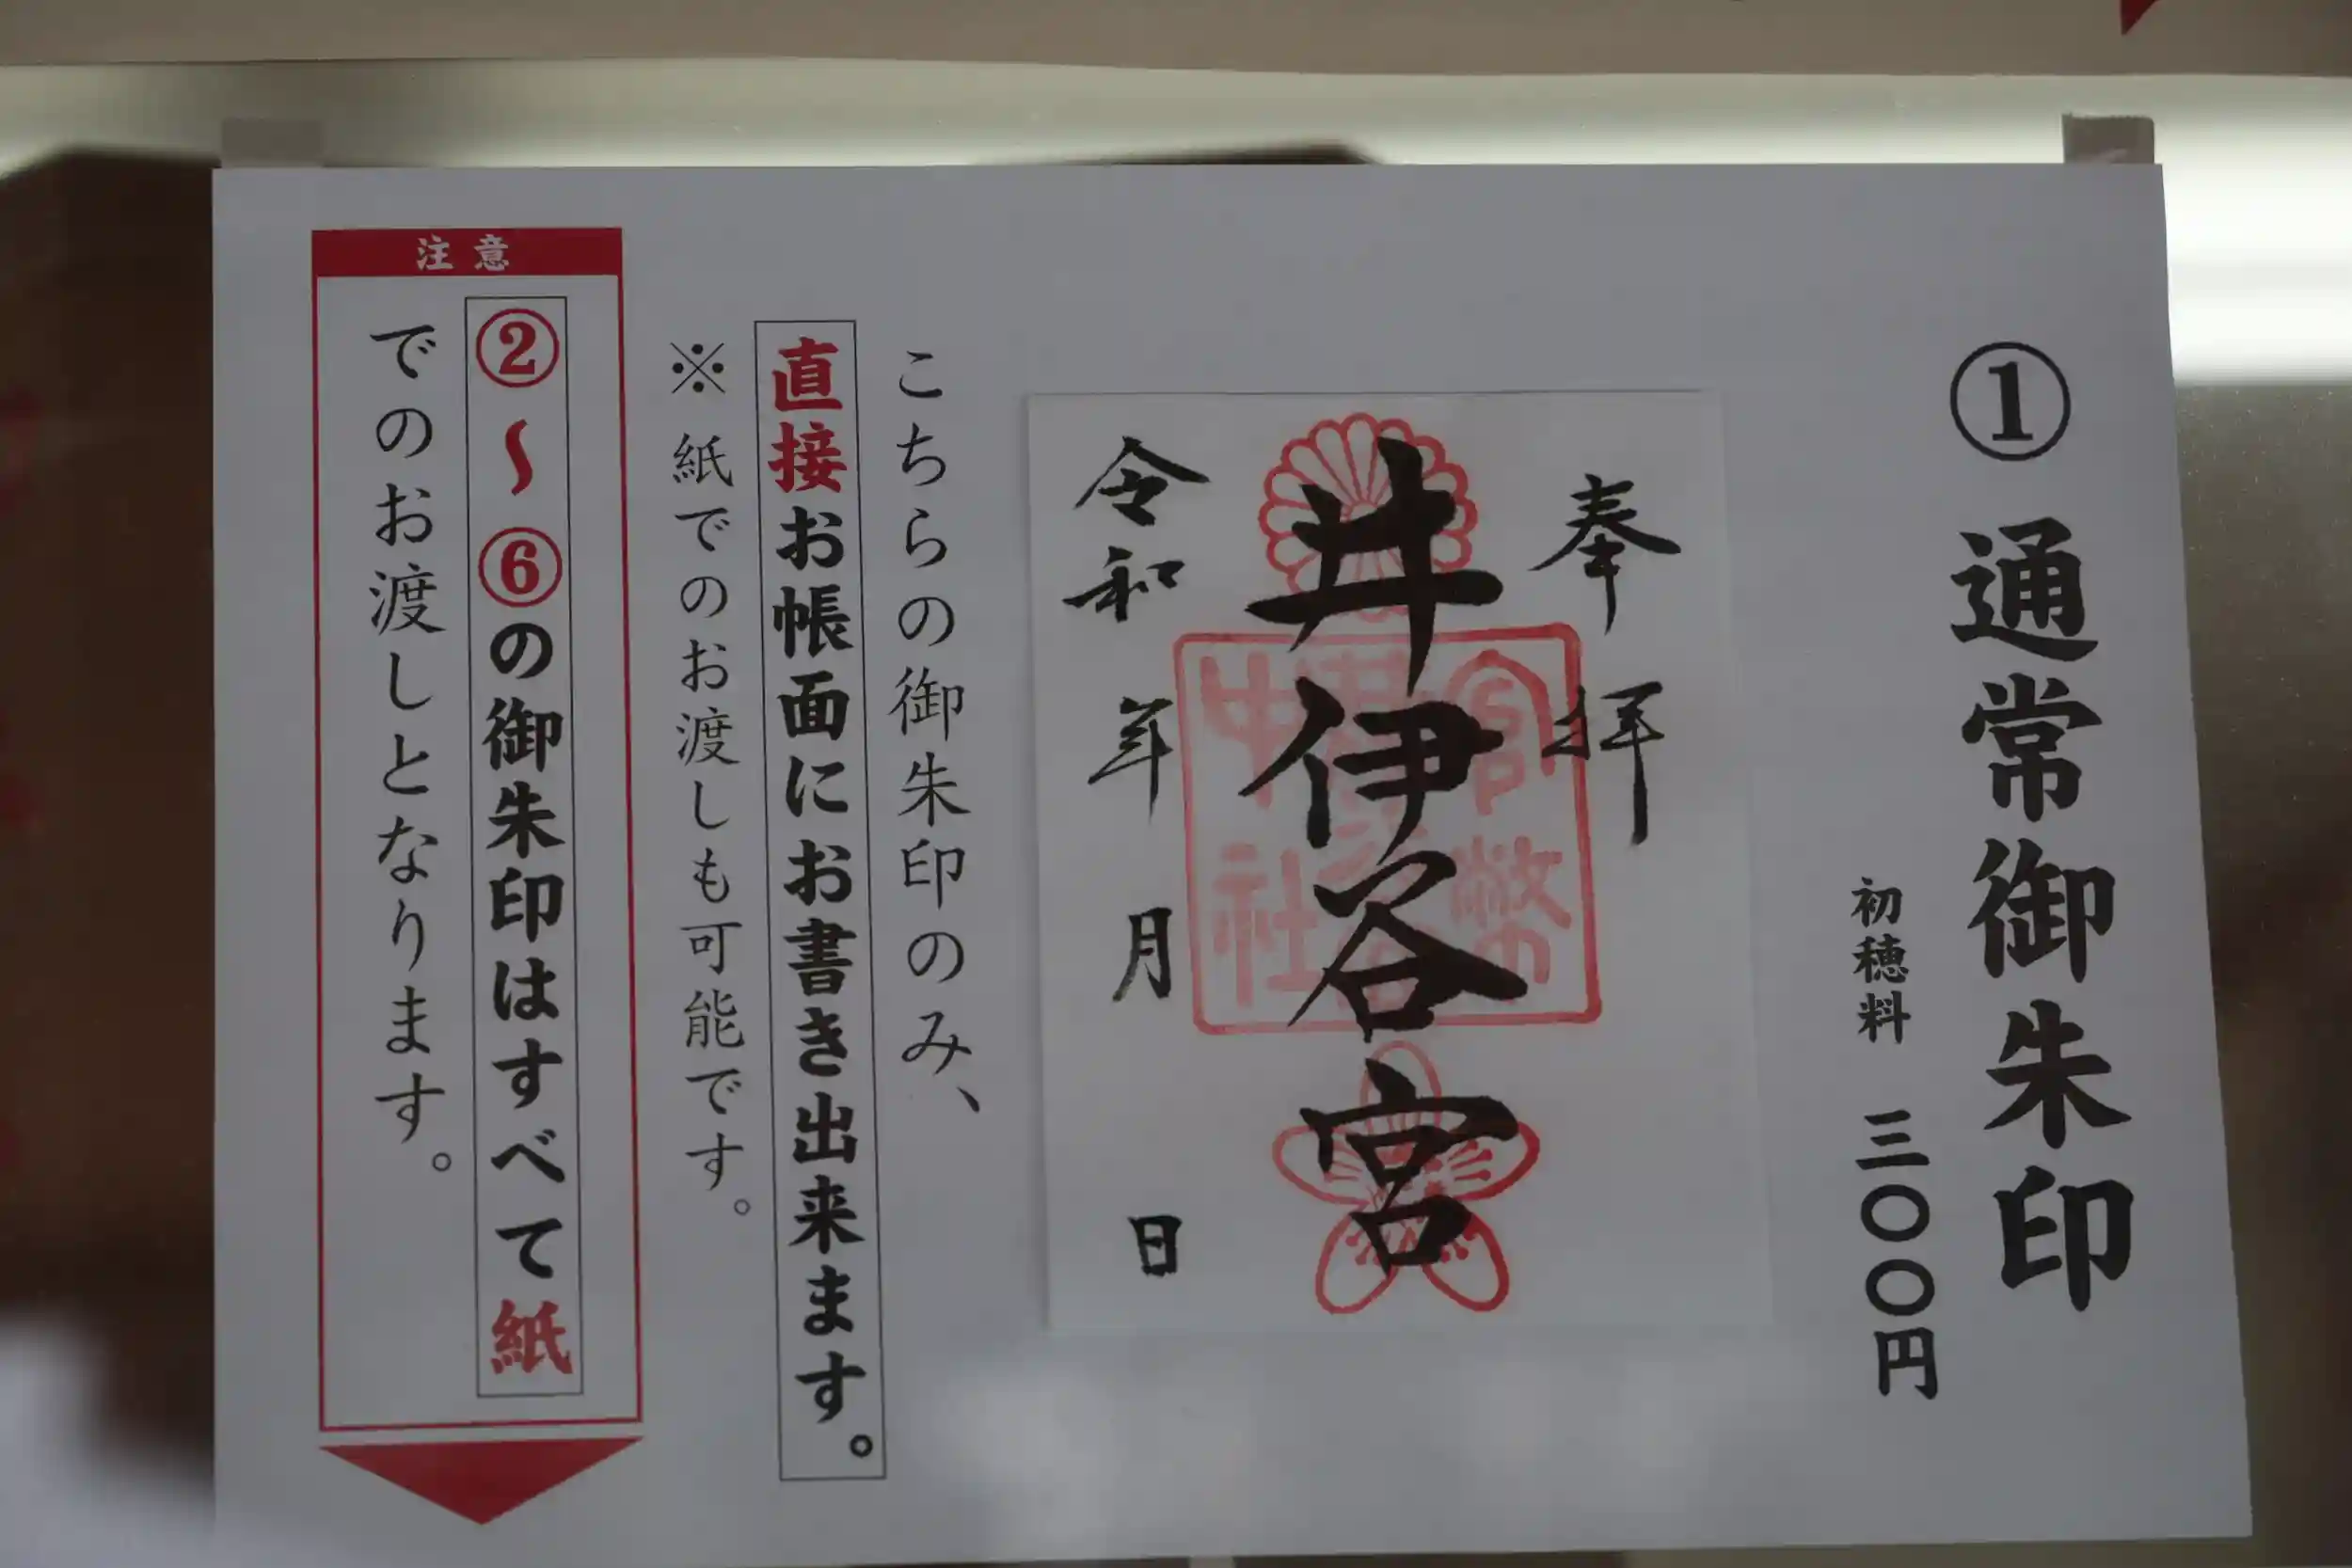 ①通常御朱印
初穂料 三〇〇円
奉拝
井伊谷宮
令和 年 月 日
官幣
中社
こちらの御朱印のみ、
直接お帳面にお書き出来ます。
※紙でのお渡しも可能です。
注意
②～⑥の御朱印はすべて紙
でのお渡しとなります。